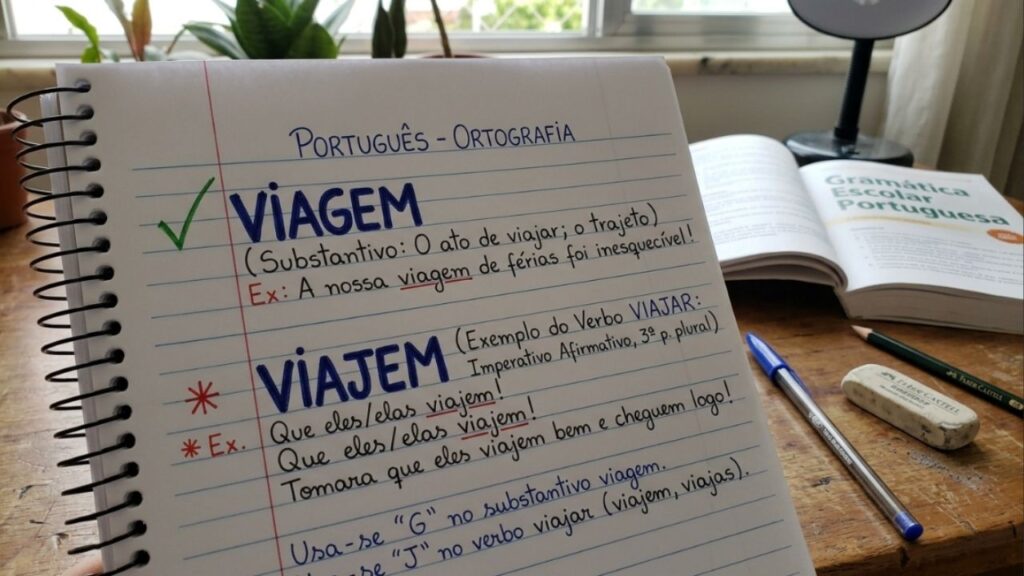 PORTUGUÊS - ORTOGRAFIA
VIAGEM
(Substantivo: O ato de viajar; o trajeto)
Ex: A nossa viagem de férias foi inesquecível!
VIAJEM (Exemplo do Verbo VIAJAR:
Imperativo Afirmativo, 3ª p. plural)
* Que eles/elas viajem!
* Ex. Que eles/elas viajem!
Tomara que eles viajem bem e cheguem logo!
Usa-se "G" no substantivo viagem.
"J" no verbo viajar (viajem, viajas).
Gramática
Escolar
Portuguesa
FABER CASTELL
FABER CASTELL